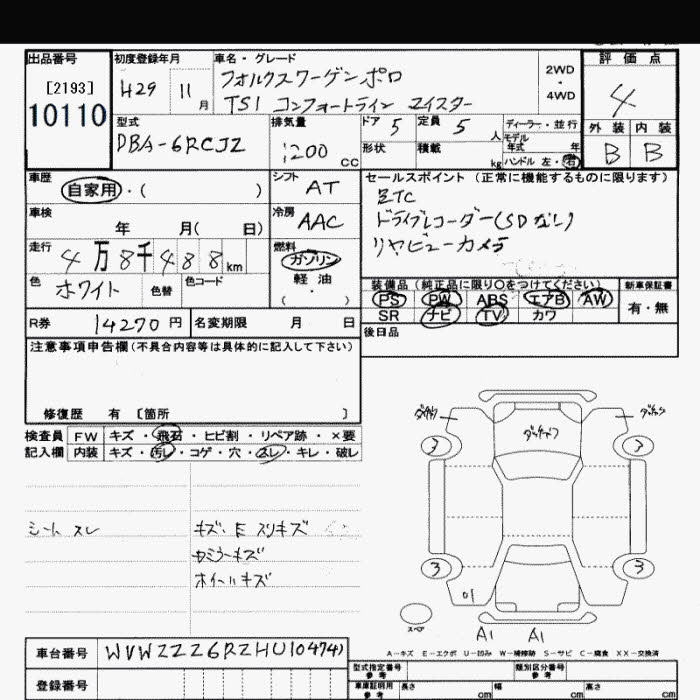 出品番号 初度登録年月 車名・グレード 評価点
[2193] H29 11月 フォルクスワーゲンポロ 2WD・4WD 4
10110 TSI コンフォートライン マイスター
型式 排気量 ドア 5 定員 5人 ディーラー・並行 外装 内装
DBA-6RCJZ 1200cc 形状 積載 kg モデル年式 年 B B
ハンドル 左・右
車歴 シフト セールスポイント(正常に機能するものに限ります)
自家用・( ) AT ETC
車検 冷房 ドライブレコーダー(SDなし)
年 月( 日) AAC リヤビューカメラ
走行 燃料
4万8千488km ガソリン
色 色替 色コード 軽油
ホワイト ・( )
装備品(純正品に限り○をつけてください) 新車保証書
PS PW ABS エアB AW 有・無
SR ナビ TV カワ
R券 14270円 名変期限 月 日 後日品
注意事項申告欄(不具合内容等は具体的に記入して下さい)
修復歴 有 [箇所 ]
検査員 FW キズ・飛石・ヒビ割・リペア跡・×要
記入欄 内装 キズ・汚レ・コゲ・穴・スレ・キレ・破レ
シート スレ キズ・E スリキズ
Rミラーキズ
ホイールキズ
3 3
3 3
スペア A1 A1
A-キズ E-エクボ U-凹み W-補修跡 S-サビ C-腐食 XX-交換済
車台番号 WVWZZZ6RZHU104741
登録番号
型式指定番号 参考 類別区分番号 参考
車庫証明用 参考 長さ cm 幅 cm 高さ cm